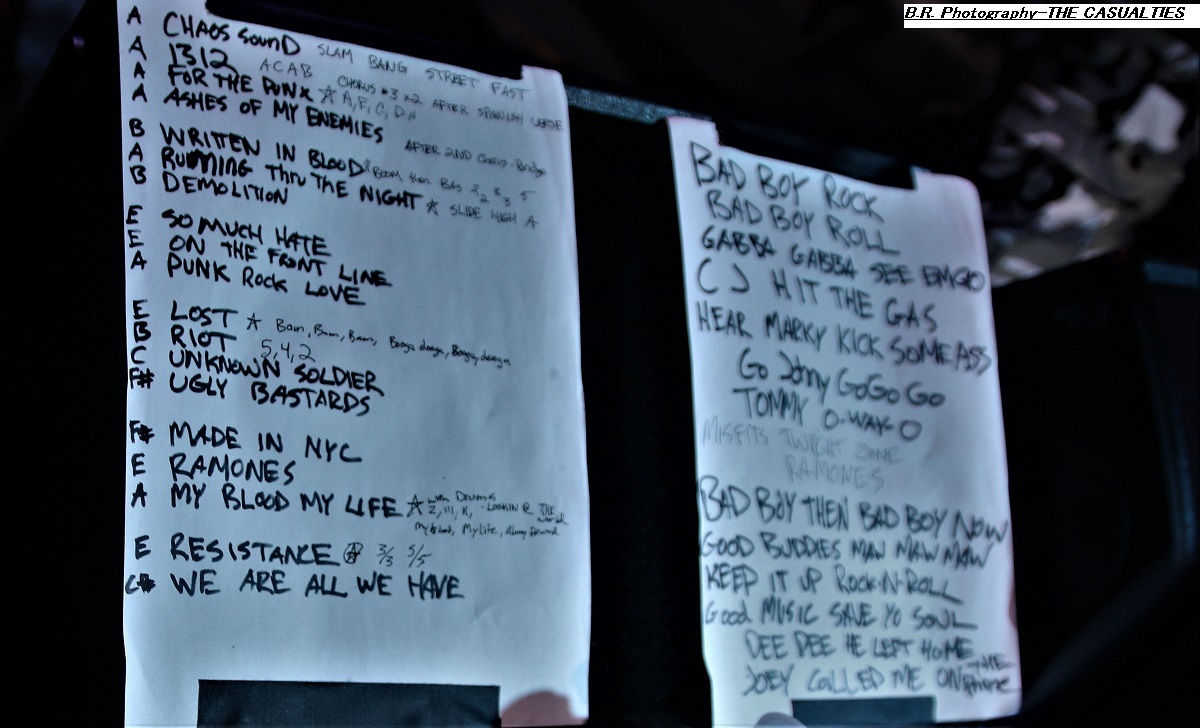 B.R. Photography-THE CASUALTIES
A CHAOS SOUND SLAM BANG STREET FAST
A 1312 ACAB CHORUS #3 x2 AFTER SPANISH VERSE
A FOR THE PUNX ☆ A, F, C, D
A ASHES OF MY ENEMIES
AFTER 2ND CHORUS-Bridge
B WRITTEN IN BLOOD BOOM then BAS
A RUNNING Thru THE NIGHT ☆ SLIDE HIGH A
B DEMOLITION
E SO MUCH HATE
E ON THE FRONT LINE
A PUNK Rock LOVE
E LOST ☆ Bam, Bam, Bam,
B RIOT 5,4,2
C UNKNOWN SOLDIER
F# UGLY BASTARDS
F# MADE IN NYC
E RAMONES
A MY BLOOD MY LIFE ☆ with DRUMS
LOOKIN @ THE world
My blood, My life, Always forward
E RESISTANCE Ⓐ 3/3 5/5
C# WE ARE ALL WE HAVE
BAD BOY ROCK
BAD BOY ROLL
GABBA GABBA SEE EM GO
CJ HIT THE GAS
HEAR MARKY KICK SOME ASS
GO JOhny GO GO GO
TOMMY O-WAY-O
MISFITS TWILIGHT ZONE
RAMONES
BAD BOY THEN BAD BOY NOW
GOOD BUDDIES MAW MAW MAW
KEEP IT UP ROCK-N-ROLL
Good MUSIC SAVE YO SOUL
DEE DEE HE LEFT HOME
JOEY CALLED ME ON THE Phone